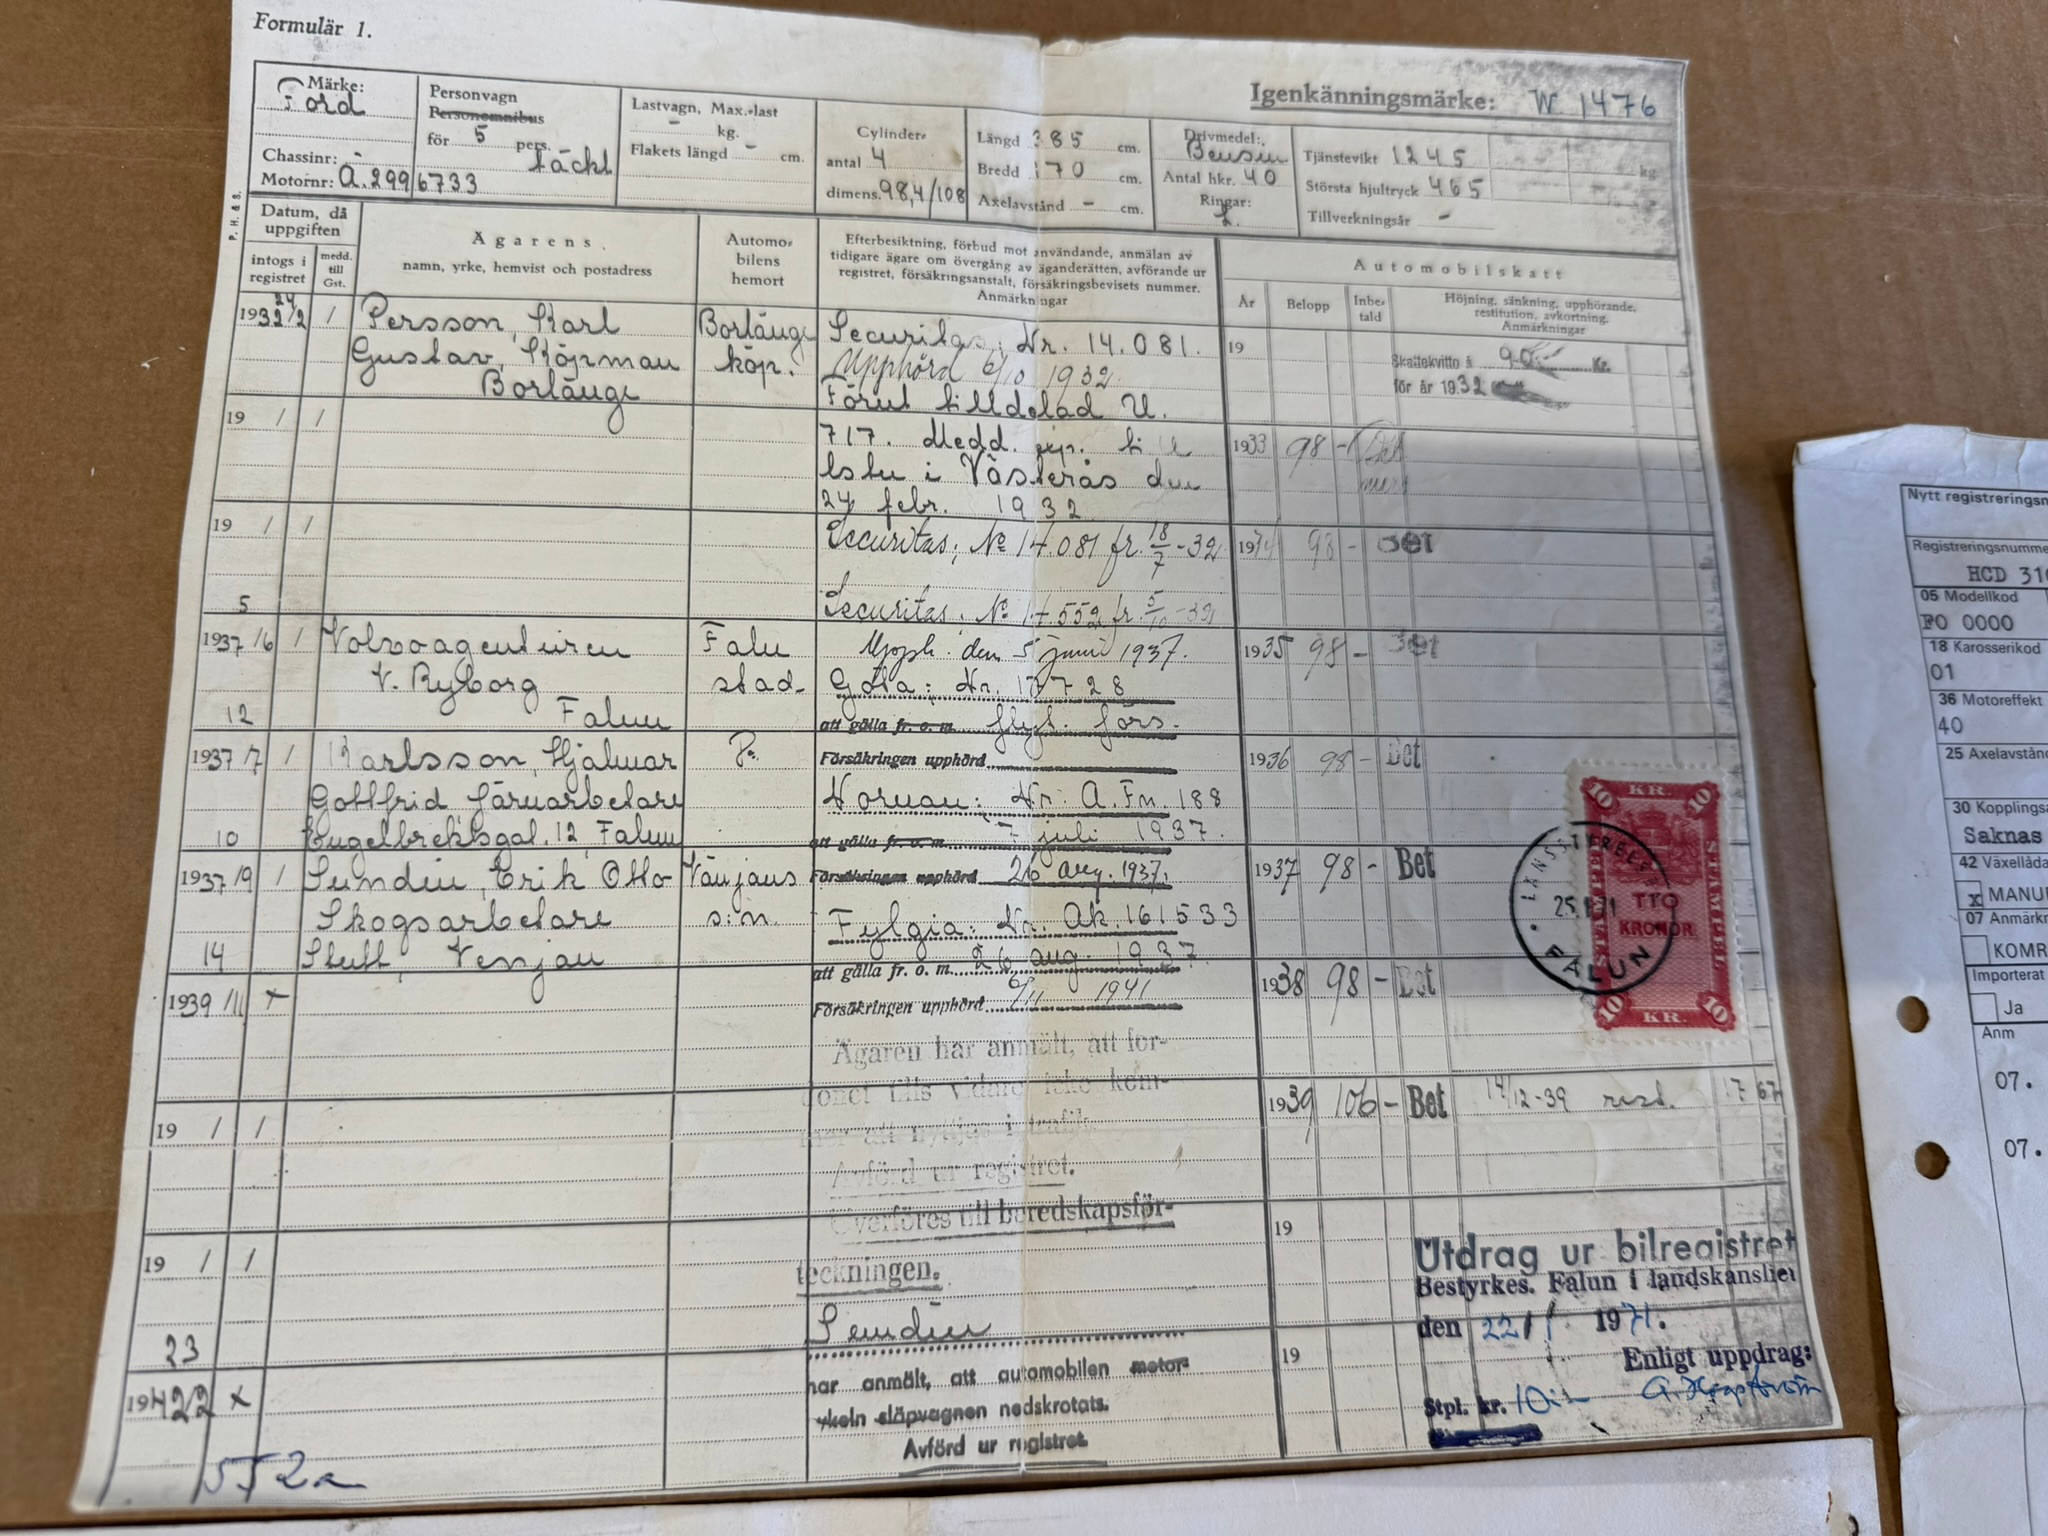 Formulär 1.
Igenkänningsmärke: W 1476
Märke:
Ford
Chassinr: -
Motornr: A.2996733
Personvagn
Personomnibus
för 5 pers.
täckt
Lastvagn, Max.-last
- kg.
Flakets längd - cm.
Cylinder-
antal 4
dimens. 98,4/108
Längd 385 cm.
Bredd 170 cm.
Axelavstånd - cm.
Drivmedel:
Bensin
Antal hkr. 40
Ringar:
L.
Tjänstevikt 1245 kg.
Största hjultryck 465
Tillverkningsår -
P. H. & S.
Datum, då
uppgiften
intogs i
registret
medd.
till
Gst.
Ägarens
namn, yrke, hemvist och postadress
Automo-
bilens
hemort
Efterbesiktning, förbud mot användande, anmälan av
tidigare ägare om övergång av äganderätten, avförande ur
registret, försäkringsanstalt, försäkringsbevisets nummer.
Anmärkningar
Automobilskatt
År
Belopp
Inbe-
tald
Höjning, sänkning, upphörande,
restitution, avkortning.
Anmärkningar
1932 24/2 /
Persson, Karl
Gustav, Köpman
Borlänge
Borlänge
köp.
Securitas: Nr. 14.081.
Upphörd 6/10 1932.
Förut tilldelad U.
717. Medd. till
lsty i Västerås den
24 febr. 1932
19
Skattekvitto å 90 Kr.
för år 1932
19 / /
1933 98 -
19 / /
Securitas, No 14.081 fr. 18/7 -32
1934 98 - Bet
Securitas. No 14.552 fr. 5/10 -32
5
1937 /6 /
Volvoagenturen
V. Ryborg
Falun
Falu
stad.
Upph. den 5 juni 1937.
Göta: Nr. 17728
att gälla fr. o. m. flyt. förs.
1935 98 - Bet
12
1937 /7 /
Karlsson, Hjalmar
Gottfrid Järnarbetare
Engelbrektsgat. 12, Falun
Försäkringen upphörd
Norman: Nr. A.Fn. 188
att gälla fr. o. m. 7 juli 1937.
1936 98 - Bet
10
1937 /9 /
Sundin, Erik Otto
Skogsarbetare
Venjan
Vänjans
s:n.
Försäkringen upphörd 26 aug. 1937.
Fylgia: Nr. Ak. 161533
att gälla fr. o. m. 26 aug. 1937.
1937 98 - Bet
14
1939 /11 +
Försäkringen upphörd 6/11 1941
1938 98 - Bet
Ägaren har anmält, att for-
donet tills vidare icke kom-
mer att nyttjas i trafik.
Avförd ur registret.
Överföres till beredskapsför-
teckningen.
1939 106 - Bet 14/12-39 rest. 17 67
19 / /
19 / /
19
Sundin
har anmält, att automobilen motor-
cykeln släpvagnen nedskrotats.
Avförd ur registret.
23
19422 x
19
10 KR. 10
STÄMPELAVGIFT
STÄMPEL
TIO
KRONOR
10 KR. 10
LÄNSSTYRELSEN
25.1.71
FALUN
Utdrag ur bilregistret
Bestyrkes. Falun i landskansliet
den 22/1 1971.
Enligt uppdrag:
Stpl. kr. 10:-
Nytt registreringsn
Registreringsnumme
HCD 31
05 Modellkod
FO 0000
18 Karosserikod
01
36 Motoreffekt
40
25 Axelavstån
30 Kopplings
Saknas
42 Växellåda
x MANU
07 Anmärk
KOMR
Importerat
Ja
Anm
07.
07.